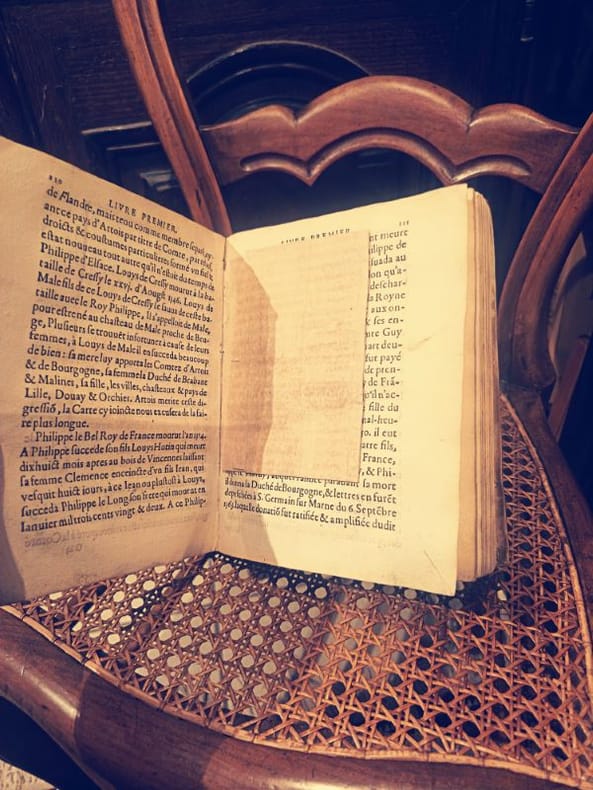 LIVRE PREMIER.
de Flandre, mais tenu comme membre separé, ay-
ant ce pays d'Artois par titre de Comté, patrons,
droicts & coustumes particulieres formé vn full
estat nouueau tout autre qu'il n'estoit du temps de
Philippe d'Elface. Louys de Cressy mourut à la ba-
taille de Cressy le xxvj. d'Aougst 1346. Louys de
Male fils de ce Louys de Cressy se sauua de ceste ba-
taille auec le Roy Philippe, Il s'appelloit de Male,
pour estre né au chasteau de Male proche de Bru-
ge, Plusieurs se trouuēt infortunez à cause de leurs
femmes, à Louys de Male il en succeda beaucoup
de bien : sa mere luy apporta les Comtez d'Artois
& de Bourgogne, sa femme la Duché de Brabant
& Malines, sa fille, les villes, chasteaux & pays de
Lille, Douay & Orchies. Artois merite ceste di-
gressiō, la Carte cy ioincte nous excusera de la fai-
re plus longue.
Philippe le Bel Roy de France mourut l'an 1314.
A Philippe succede son fils Louys Hutin qui meurt
dixhuict mois apres au bois de Vincennes laissant
sa femme Clemence enceincte d'vn fils Iean, qui
vesquit huict iours, à ce Iean ou plustost à Louys,
succeda Philippe le Long son frere qui mourut en
Ianuier mil trois cents vingt & deux. A ce Philip-
111
LIVRE PREMIER
nt meure
ilippe de
suada au
lon qu'a-
deschar-
la Royne
aux on-
& ses en-
te Guy
part deu-
fut payé
de pren-
de Frā-
qu'il n'ac-
fille du
nal-heu-
go. il eut
utre fils,
France,
, & Phi-
sa mort
il donna la Duché de Bourgogne, & lettres en furēt
depeschées à S. Germain sur Marne du 6. Septēbre
1363. laquelle donatiō fut ratifiée & amplifiée dudit